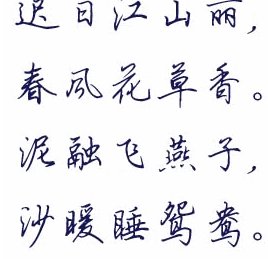 迟日江山丽,
春风花草香。
泥融飞燕子,
沙暖睡鸳鸯。